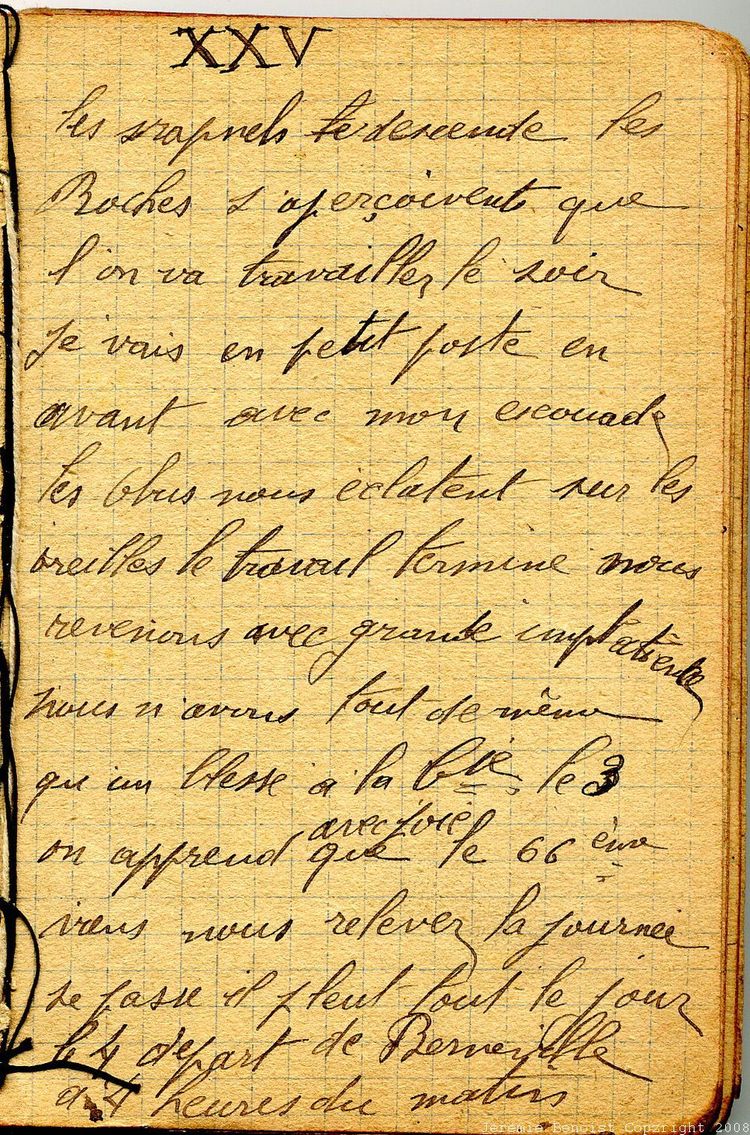 XXV
les srapnels te descende les
Boches s'aperçoivents que
l'on va travailler le soir
je vais en petit poste en
avant avec mon escouade
les obus nous éclatent sur les
oreilles le travail termine nous
revenons avec grande impatiente
nous n'avons tout de même
qu'un blesse a la Cie le 3
avec joie
on apprend que le 66 ème
viens nous relever la journée
se passe il pleut tout le jour
le 4 départ de Berneville
a 4 heures du matin
Jeremie Benoist Copyright 2008